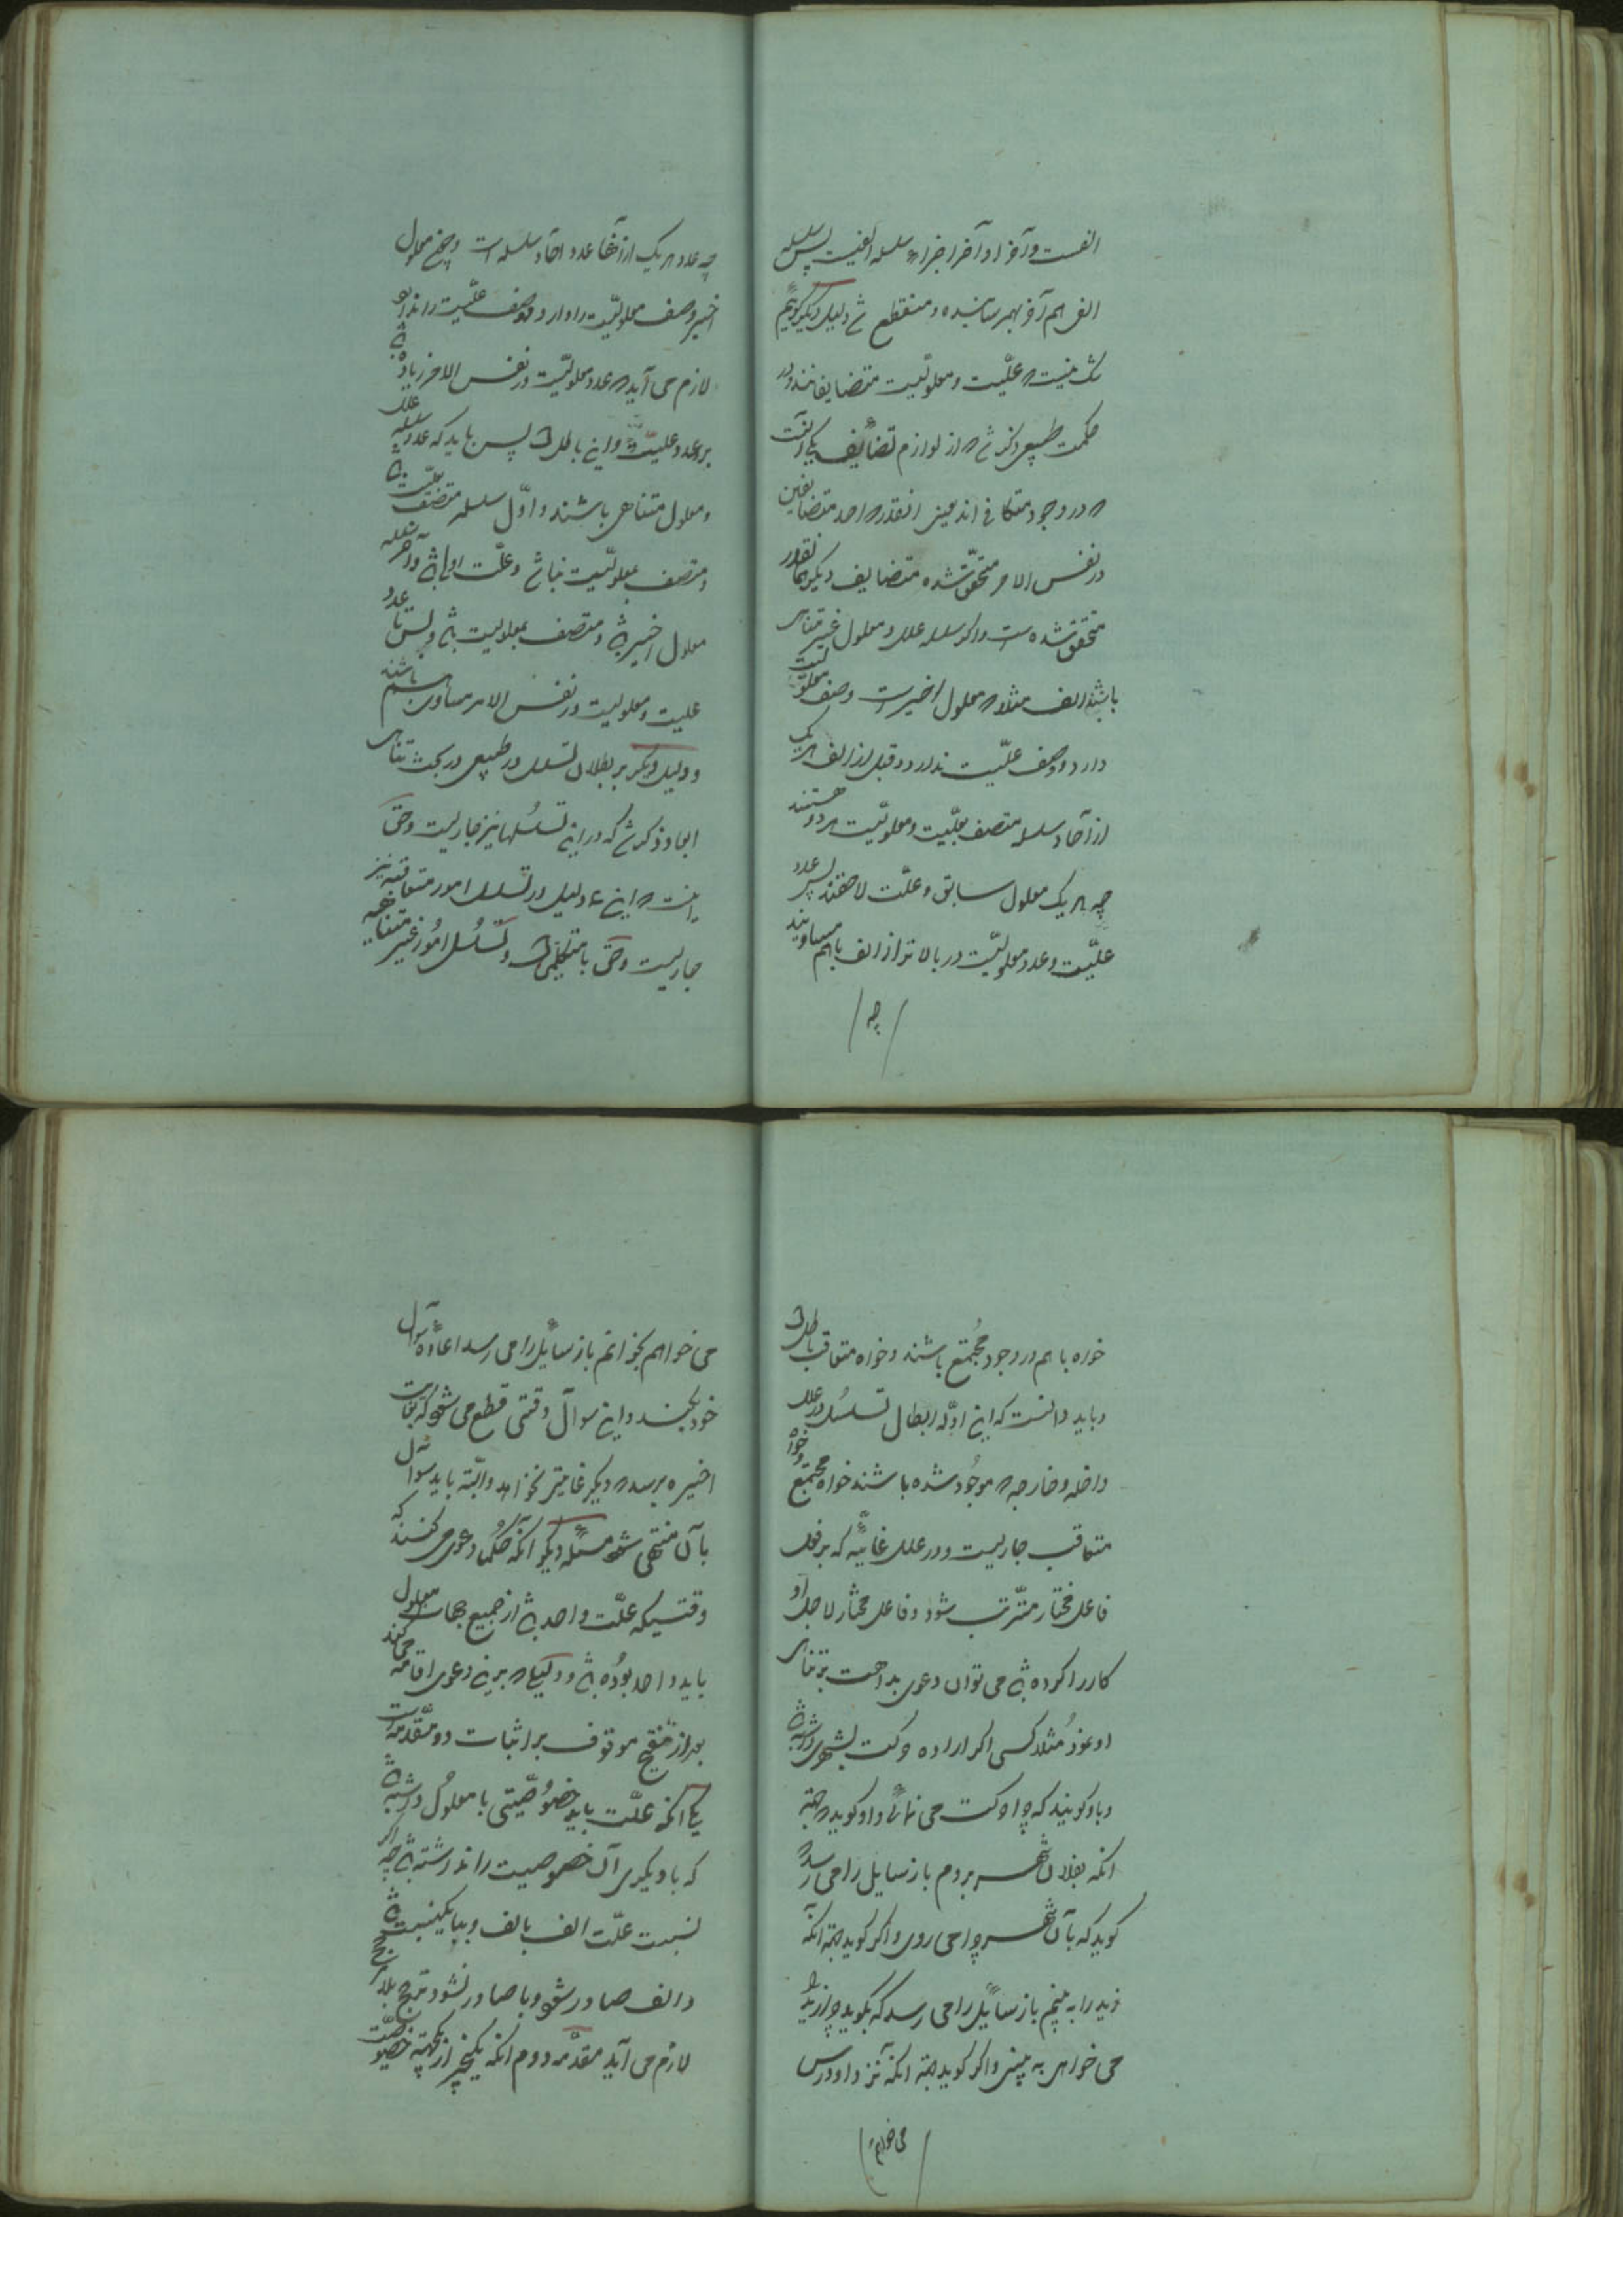 الفست و آخر او آخر اجزاء سلسله الفیست پس سلسله
الف هم آخر بهم رسانیده و منقطع شد دلیل دیگر گوییم
شک نیست که علّیت و معلولیّت متضایفانند و در
حکمت طبیعی ذکر شد که از لوازم تضایف یکی آنست
که در وجود متکافی‌اند یعنی آنقدر که احد متضایفین
در نفس الامر متحقّق شده متضایف دیگر همانقدر
متحقق شده است و اگر سلسله علل و معلول غیر متناهی
باشند الف مثلا که معلول اخیرست وصف معلولیت
دارد و وصف علّیت ندارد و قبل از الف هر یک
از آحاد سلسله متصف بعلّیت و معلولیّت هر دو هستند
چه هر یک معلول سابق و علّت لاحقند پس عدد
علّیت و عدد معلولیّت در بالاتر از الف با هم مساویند
چه
چه عدد هر یک از آنها عدد آحاد سلسله است و چون معلول
اخیر وصف معلولیّت را دارد و وصف علّیت را ندارد
لازم می آید که عدد معلولیّت در نفس الامر زیاده باشد
بر عدد علیّت و این باطل است پس باید که عدد سلسله علل
و معلول متناهی باشند و اوّل سلسله متصف بعلّیت باشد
و متصف بمعلولیّت نباشد و علّت اولی باشد و آخر سلسله
معلول اخیر باشد و متصف بمعلولیت باشد و بس تا عدد
علیت و معلولیت در نفس الامر مساوی هم باشند
و دلیل دیگر بر بطلان تسلسل در طبیعی در بحث تناهی
ابعاد ذکر شد که در این تسلسلها نیز جاریست و حق
اینست که این دلیل در تسلسل امور متعاقبه نیز
جاریست و حق با متکلمین است و تسلسل امور غیر متناهیه
خواه با هم در وجود مجتمع باشند و خواه متعاقب باطل است
و باید دانست که این ادلّه ابطال تسلسل در علل
داخله و خارجه که موجود شده باشند خواه مجتمع و خواه
متعاقب جاریست و در علل غائیّه که بر فعل
فاعل مختار مترتب شود و فاعل مختار لاجل او
کار را کرده باشد می توان دعوی بداهت بر تناهی
او نمود مثلا کسی اگر اراده حرکت بشهری داشته باشد
و باو گویند که چرا حرکت می نمائی و او گوید که جهة
آنکه بفلان شهر بروم باز سایل را می رسد که
گوید که بآن شهر چرا می روی و اگر گوید جهة آنکه
زید را به بینم باز سائل را می رسد که بگوید چرا زید را
می خواهی به بینی و اگر گوید جهة آنکه نزد او درس
می خوانم
می خواهم بخوانم باز سائل را می رسد اعاده سوال
خود بکند و این سوال وقتی قطع می شود که بغایت
اخیره برسد که دیگر غایتی نخواهد و البتّه باید سوال
بآن منتهی شود مسئله دیگر آنکه حکما دعوی می کنند که
وقتیکه علّت واحد باشد از جمیع جهات معلول
باید واحد بوده باشد و دلیلی که بر این دعوی اقامه می کنند
بعد از تنقیح موقوف بر اثبات دو مقدّمه است
یکی آنکه علّت باید خصوصیّتی با معلول داشته باشد
که با دیگری آن خصوصیت را نداشته باشد چه اگر
نسبت علّت الف بالف و ببا یکنسبت باشد
و الف صادر شود و با صادر نشود ترجیح بلا مرجح
لازم می آید مقدّمه دوم آنکه یکچیز از یکجهة خصوصیّت